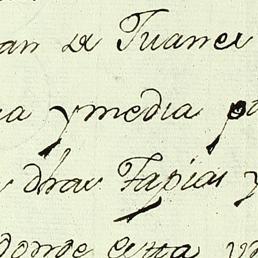 an de Juanes
a y media p
dhas Tapias y
donde esta